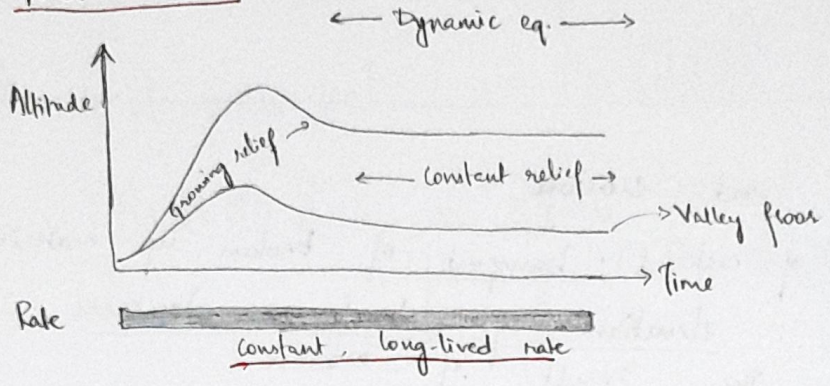 ← Dynamic eq. →
Altitude
Growing relief →
← Constant relief →
→ Valley floor
→ Time
Rate
Constant, long-lived rate